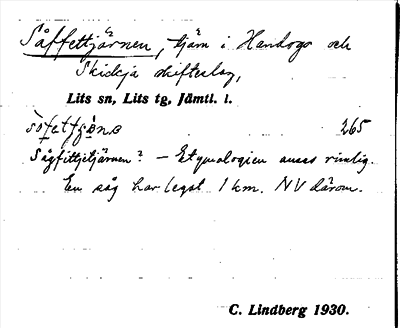 Såffettjärnen, tjärn i Handogs och
Skickja skifteslag,
Lits sn, Lits tg, Jämtl. l.
265
Sågfittjetjärnen? – Etymologien anses rimlig.
En såg har legat 1 km. NV därom.
C. Lindberg 1930.